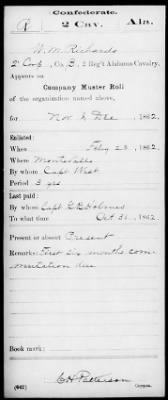 Confederate.
R 2 Cav. Ala.
W. M. Richards
2' Corp, Co. B, 2 Reg't Alabama Cavalry.
Appears on
Company Muster Roll
of the organization named above,
for Nov & Dec, 1862.
Enlisted:
When Feby 28, 1862.
Where Montevallo
By whom Capt West
Period 3 yrs
Last paid:
By whom Capt G.B. Holmes
To what time Oct 31, 1862.
Present or absent Present
Remarks: First six months com-
mutation due
Book mark:
C H Patterson
(642) Copyist.